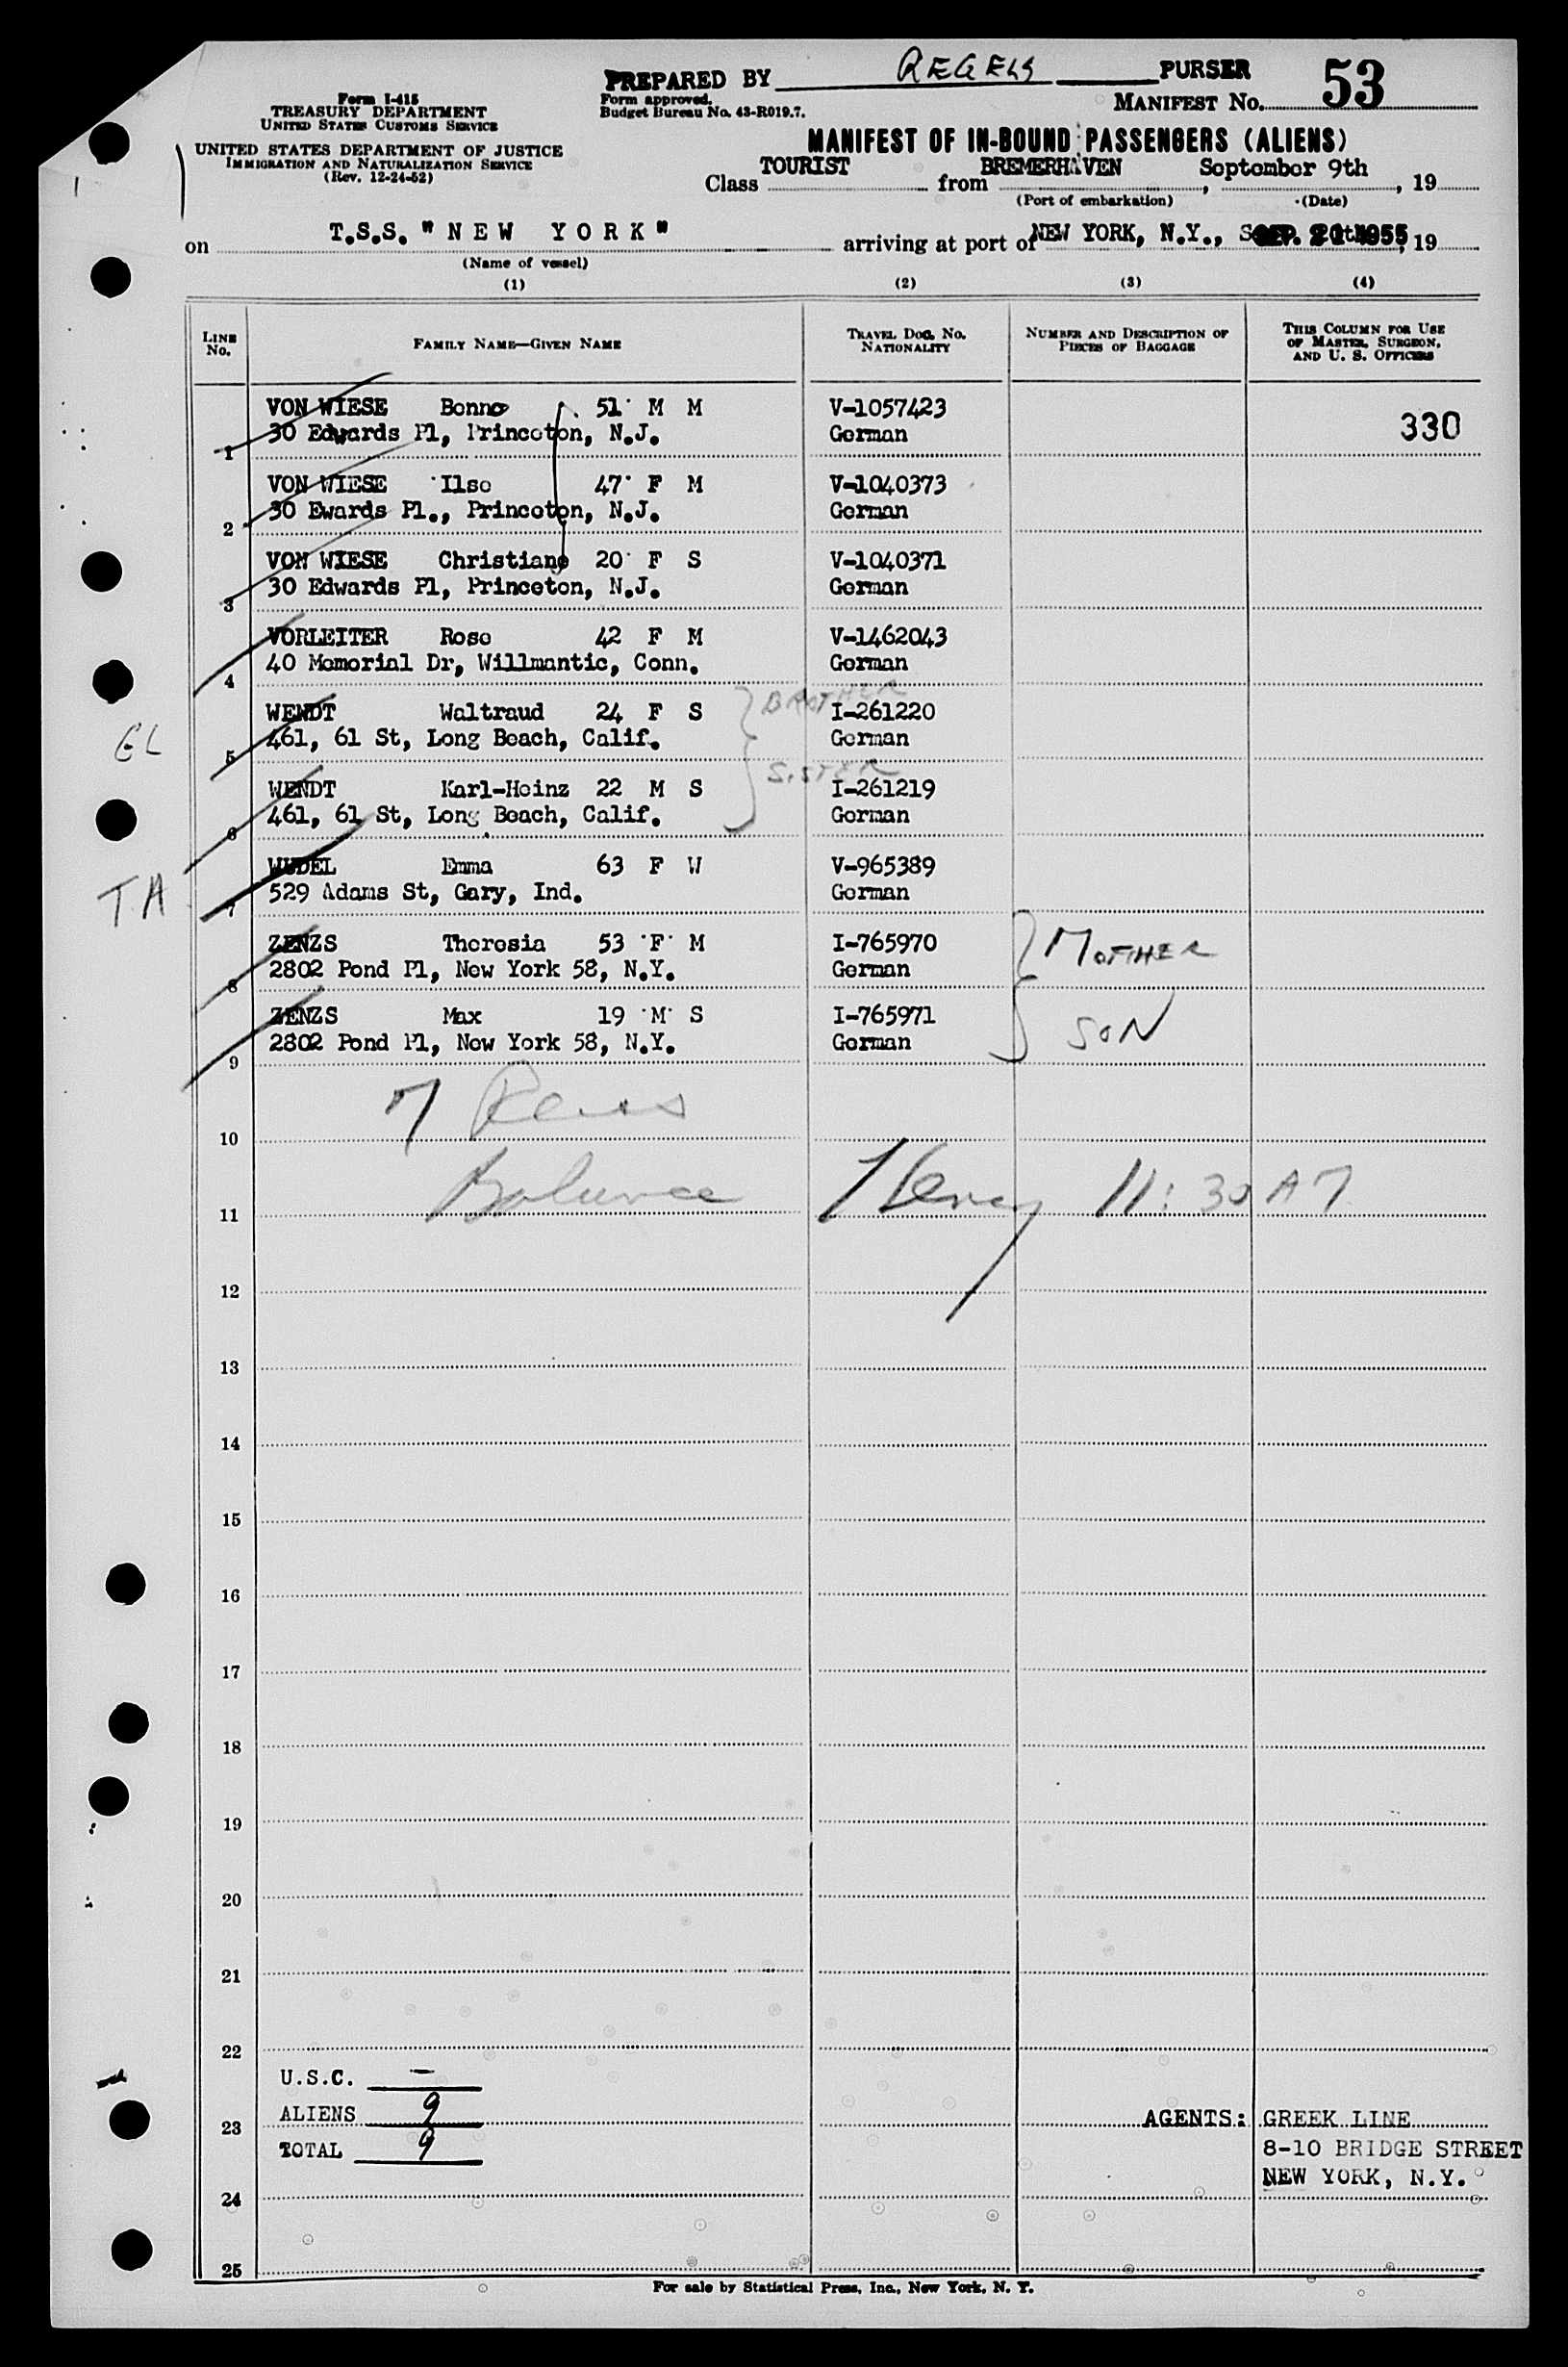 PREPARED BY REGELS PURSER
Form I-415
TREASURY DEPARTMENT
UNITED STATES CUSTOMS SERVICE
UNITED STATES DEPARTMENT OF JUSTICE
IMMIGRATION AND NATURALIZATION SERVICE
(Rev. 12-24-52)
Form approved.
Budget Bureau No. 43-R019.7.
MANIFEST No. 53
MANIFEST OF IN-BOUND PASSENGERS (ALIENS)
Class TOURIST from BREMERHAVEN, September 9th, 19
(Port of embarkation) (Date)
on T.S.S. "NEW YORK" arriving at port of NEW YORK, N.Y., 1955, 19
(Name of vessel)
(1) (2) (3) (4)
LINE No. FAMILY NAME—GIVEN NAME TRAVEL DOC. No. NATIONALITY NUMBER AND DESCRIPTION OF PIECES OF BAGGAGE THIS COLUMN FOR USE OF MASTER, SURGEON, AND U. S. OFFICERS
VON WIESE Benno 51 M M V-1057423
330
1 30 Edwards Pl, Princeton, N.J. German
VON WIESE Ilse 47 F M V-1040373
2 30 Ewards Pl., Princeton, N.J. German
VON WIESE Christiane 20 F S V-1040371
3 30 Edwards Pl, Princeton, N.J. German
VORLEITER Rose 42 F M V-1462043
4 40 Memorial Dr, Willmantic, Conn. German
BROTHER
WENDT Waltraud 24 F S I-261220
EL
5 461, 61 St, Long Beach, Calif. German
SISTER
WENDT Karl-Heinz 22 M S I-261219
6 461, 61 St, Long Beach, Calif. German
WUDEL Emma 63 F W V-965389
TA
7 529 Adams St, Gary, Ind. German
ZENZS Theresia 53 F M I-765970
MOTHER
8 2802 Pond Pl, New York 58, N.Y. German
ZENZS Max 19 M S I-765971
SON
9 2802 Pond Pl, New York 58, N.Y. German
7
10
Balance 11:30 A
11
12
13
14
15
16
17
18
19
20
21
22
U.S.C. —
ALIENS 9
23
AGENTS: GREEK LINE
TOTAL 9
8-10 BRIDGE STREET
NEW YORK, N.Y.
24
25
For sale by Statistical Press, Inc., New York, N. Y.